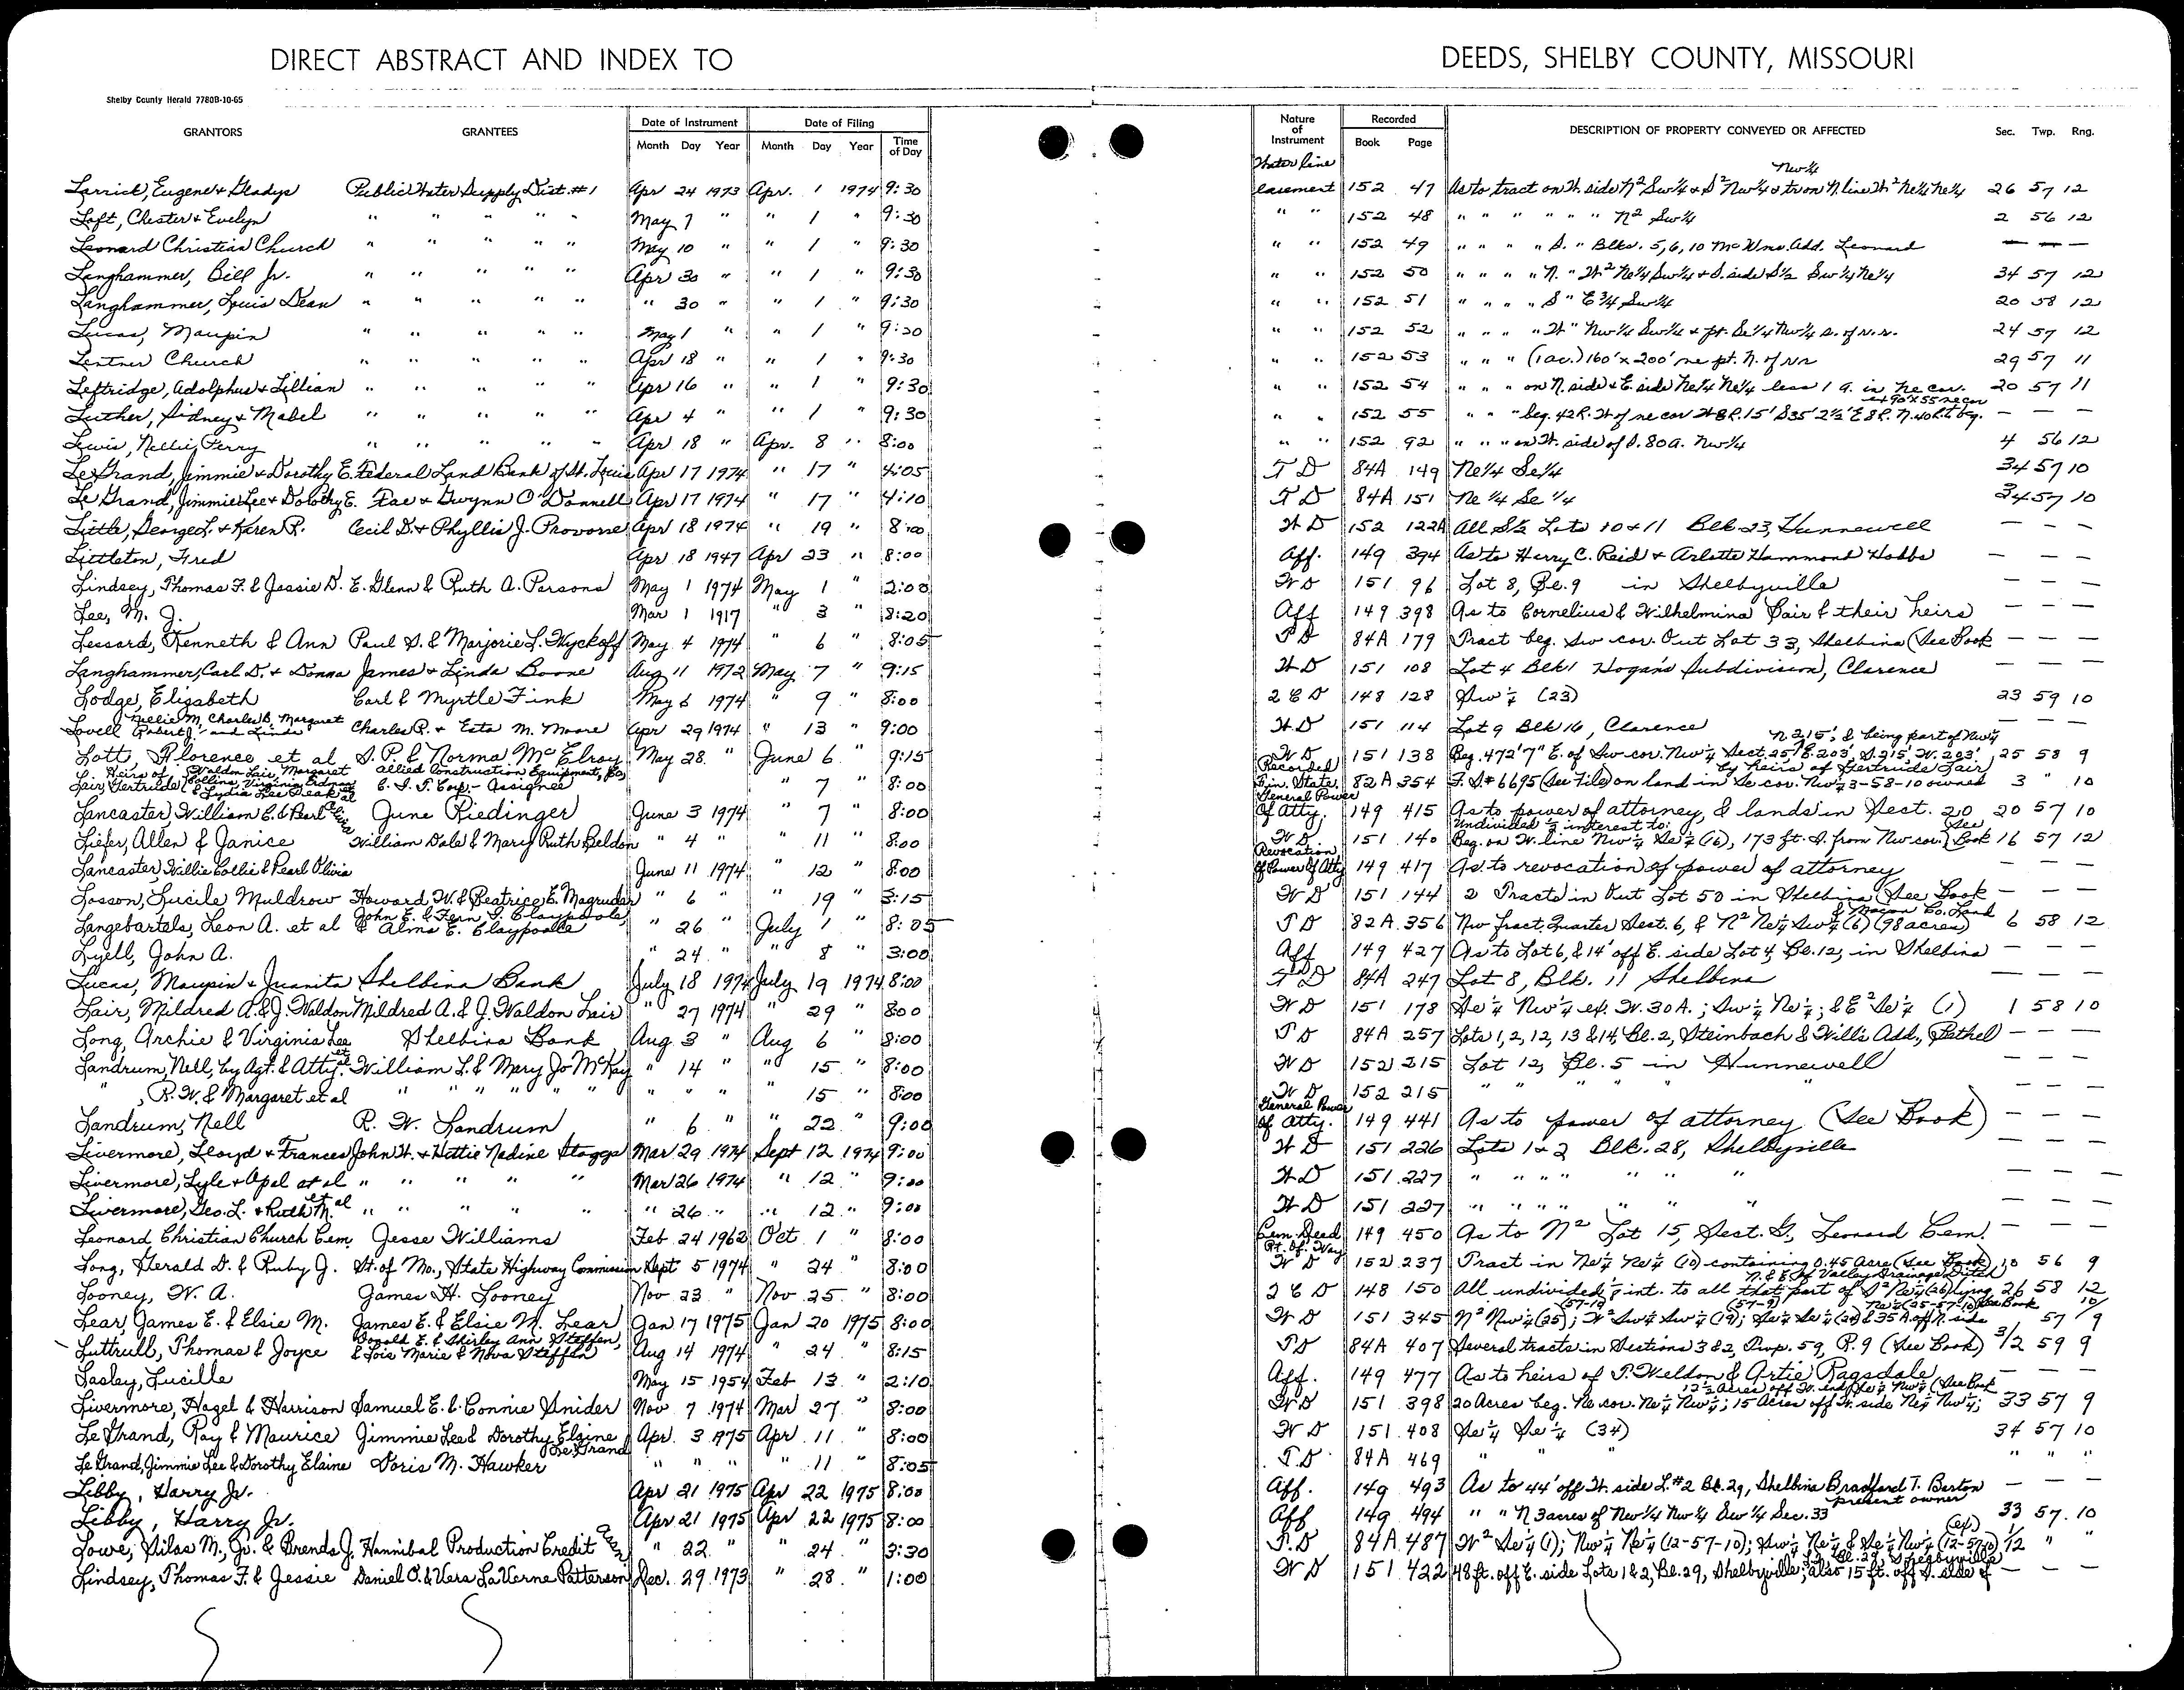 DIRECT ABSTRACT AND INDEX TO DEEDS, SHELBY COUNTY, MISSOURI
Shelby County Herald 7780B-10-65
GRANTORS GRANTEES Date of Instrument Month Day Year Date of Filing Month Day Year Time of Day Nature of Instrument Recorded Book Page DESCRIPTION OF PROPERTY CONVEYED OR AFFECTED Sec. Twp. Rng.
Larrick, Eugene & Gladys Public Water Supply Dist. #1 Apr 24 1973 Apr. 1 1974 9:30 Water line easement 152 47 As to tract on W. side N² Sw¼ & S² Nw¼ & tr on N. line W² Ne¼ Ne¼ Nw¼ 26 57 12
Loft, Chester & Evelyn " " " " " May 7 " " 1 " 9:30 " " 152 48 " " " " " " N² Sw¼ 2 56 12
Leonard Christian Church " " " " " May 10 " " 1 " 9:30 " " 152 49 " " " " S. " Blks. 5, 6, 10 McWms. Add. Leonard — — —
Langhammer, Bill Jr. " " " " " Apr 30 " " 1 " 9:30 " " 152 50 " " " " N. " W² Ne¼ Sw¼ & S. side S½ Sw¼ Ne¼ 34 57 12
Langhammer, Louis Dean " " " " " " 30 " " 1 " 9:30 " " 152 51 " " " " S " E¾ Sw¼ 20 58 12
Lucas, Maupin " " " " " May 1 " " 1 " 9:30 " " 152 52 " " " " W " Nw¼ Sw¼ & pt. Se¼ Nw¼ S. of r.r. 24 57 12
Lentner Church " " " " " Apr 18 " " 1 " 9:30 " " 152 53 " " " (1 ac.) 160' x 200' ne pt. N. of rr 29 57 11
Leftridge, Adolphus & Lillian " " " " " Apr 16 " " 1 " 9:30 " " 152 54 " " " on N. side & E. side Ne¼ Ne¼ less 1 a. in ne cor. 20 57 11
Luther, Sidney & Mabel " " " " " Apr 4 " " 1 " 9:30 " " 152 55 " " " beg. 42R. W of ne cor W 8R. 15' S35' 2½' E 8R. N. 40R to beg. — — —
Lewis, Nellie Perry " " " " " Apr 18 " Apr. 8 " 8:00 " " 152 92 " " " on W. side of S. 80a. Nw¼ 4 56 12
LeGrand, Jimmie & Dorothy E. Federal Land Bank of St. Louis Apr 17 1974 " 17 " 4:05 T D 84A 149 Ne¼ Se¼ 34 57 10
Le Grand, Jimmie Lee & Dorothy E. Fae & Gwynn O'Donnell Apr 17 1974 " 17 " 4:10 T D 84A 151 Ne¼ Se¼ 34 57 10
Little, George L. & Karen R. Cecil D. & Phyllis J. Provorse Apr 18 1974 " 19 " 8:00 W D 152 122A All S½ Lots 10 & 11 Blk 23, Hunnewell — — —
Littleton, Fred Apr 18 1947 Apr 23 " 8:00 Aff. 149 394 As to Harry C. Reid & Arlotta Hammond Hobbs — — —
Lindsey, Thomas F. & Jessie D. E. Glenn & Ruth A. Parsons May 1 1974 May 1 " 2:00 W D 151 96 Lot 8, Bl. 9 in Shelbyville — — —
Lee, M. J. Mar 1 1917 " 3 " 8:20 Aff 149 398 As to Cornelius & Wilhelmina Bair & their heirs — — —
Lessard, Kenneth & Ann Paul S. & Marjorie L. Wyckoff May 4 1974 " 6 " 8:05 T D 84A 179 Tract beg. Sw cor. Out Lot 33, Shelbina (See Book — — —
Langhammer, Carl D. & Donna James & Linda Boone Aug 11 1972 May 7 " 9:15 W D 151 108 Lot 4 Blk 1 Hogan's Subdivision, Clarence — — —
Lodge, Elizabeth Carl & Myrtle Fink May 6 1974 " 9 " 8:00 2 C D 148 128 Sw ¼ (23) 23 59 10
Lovell Nellie M, Charles B, Margaret Robert J. and Linda Charles R. & Esta M. Moore Apr 29 1974 " 13 " 9:00 W D 151 114 Lot 9 Blk 16, Clarence — — —
Lott, Florence et al S. P. & Norma McElroy May 28 " June 6 " 9:15 W D 151 138 Beg. 472'7" E. of Sw cor. Nw¼ Sect. 25, E. 203', S. 215', W. 203', N 215', & being part of Nw¼ 25 58 9
Lair, Gertrude (Heirs of Waldon Lair, Margaret Collins, Virginia & Lydia Lee Peak et al Allied Construction Equipment, Co. C. I. T. Corp. - Assignee " 7 " 8:00 Recorded Fin. State. 82A 354 F. S # 6695 (See File) on land in Se cor. Nw¼ 3-58-10 owned by heirs of Gertrude Lair 3 " 10
Lancaster, William C. & Pearl Olivia June Riedinger June 3 1974 " 7 " 8:00 General Power Of Atty. 149 415 As to power of attorney, & lands in Sect. 20 20 57 10
Liefer, Allen & Janice William Dale & Mary Ruth Beldon " 4 " " 11 " 8:00 W D 151 140 Undivided ½ interest to: Beg. on W. line Nw¼ Se¼ (16), 173 ft. S. from Nw cor. (See Book 16 57 12
Lancaster, Willie Collie & Pearl Olivia June 11 1974 " 12 " 8:00 Revocation Of Power Of Atty 149 417 As to revocation of power of attorney — — —
Losson, Lucile Muldrow Howard W. & Beatrice E. Magruder " 6 " " 19 " 3:15 W D 151 144 2 Tracts in Out Lot 50 in Shelbina (See Book — — —
Langebartels, Leon A. et al John E. & Fern I. Claypoole, & Alma E. Claypoole " 26 " July 1 " 8:05 T D 82A 356 Nw fract. Quarter Sect. 6, & N² Ne¼ Sw¼ (6) (98 acres) & Macon Co. Land 6 58 12
Lyell, John A. " 24 " " 8 " 3:00 Aff 149 427 As to Lot 6, & 14' off E. side Lot 4, Bl. 12, in Shelbina — — —
Lucas, Maupin & Juanita Shelbina Bank July 18 1974 July 19 1974 8:00 T D 84A 247 Lot 8, Blk. 11 Shelbina — — —
Lair, Mildred A. & J. Waldon Mildred A. & J. Waldon Lair " 27 1974 " 29 " 8:00 W D 151 178 Se¼ Nw¼ ex. W. 30 A.; Sw¼ Ne¼; & E² Se¼ (1) 1 58 10
Long, Archie & Virginia Lee Shelbina Bank Aug 3 " Aug 6 " 8:00 T D 84A 257 Lots 1, 2, 12, 13 & 14, Bl. 2, Steinbach & Will's Add., Bethel — — —
Landrum, Nell, by Agt. & Atty. et al William L. & Mary Jo McKay " 14 " " 15 " 8:00 W D 152 215 Lot 12, Bl. 5 in Hunnewell — — —
" , R. W. & Margaret et al " " " " " " " " " 15 " 8:00 W D 152 215 " " " " — — —
Landrum, Nell R. W. Landrum " 6 " " 22 " 9:00 General Power Of Atty. 149 441 As to power of attorney (See Book) — — —
Livermore, Lloyd & Frances John H. & Hettie Nadine Staggs Mar 29 1974 Sept 12 1974 9:00 W D 151 226 Lots 1 & 2 Blk. 28, Shelbyville — — —
Livermore, Lyle & Opal et al " " " " " Mar 26 1974 " 12 " 9:00 W D 151 227 " " " " " " " — — —
Livermore, Geo. L. & Ruth M. et al " " " " " " 26 " " 12 " 9:00 W D 151 227 " " " " " " " — — —
Leonard Christian Church Cem. Jesse Williams Feb 24 1962 Oct. 1 " 8:00 Cem. Deed 149 450 As to N² Lot 15, Sect. G, Leonard Cem. — — —
Long, Herald D. & Ruby J. St. of Mo., State Highway Commission Sept 5 1974 " 24 " 8:00 Rt. Of Way W D 152 237 Tract in Ne¼ Ne¼ (10) containing 0.45 Acre (See Book) 10 56 9
Looney, W. A. James H. Looney Nov 23 " Nov 25 " 8:00 2 C D 148 150 All undivided int. to all that part of S² Ne¼ (26) lying N. & E. of Valley Drainage Ditch 26 58 12
Lear, James E. & Elsie M. James E. & Elsie M. Lear Jan 17 1975 Jan 20 1975 8:00 W D 151 345 N² Nw¼ (25); W² Sw¼ Sw¼ (19); Se¼ Se¼ (24) & 35 A. off N. side (57-10) (57-9) Ne¼ (25-57-10) (See Book 57 10/9
Luttrull, Thomas & Joyce Donald E. & Shirley Ann Steffen, & Lois Marie & Nova Steffen Aug 14 1974 " 24 " 8:15 T D 84A 407 Several tracts in Sections 3 & 2, Twp. 59, R. 9 (See Book) 3/2 59 9
Lasley, Lucille May 15 1954 Feb 13 " 2:10 Aff. 149 477 As to heirs of T. Weldon & Artie Ragsdale — — —
Livermore, Hazel & Harrison Samuel E. & Connie Snider Nov 7 1974 Mar 27 " 8:00 W D 151 398 20 Acres beg. Ne cor. Ne¼ Nw¼; 15 Acres off W. side Ne¼ Nw¼; 12½ acres off W. end Se¼ Nw¼ (See Book 33 57 9
Le Grand, Ray & Maurice Jimmie Lee & Dorothy Elaine Le Grand Apr. 3 1975 Apr. 11 " 8:00 W D 151 408 Se¼ Se¼ (34) 34 57 10
Le Grand, Jimmie Lee & Dorothy Elaine Doris M. Hawker " " " " 11 " 8:05 T. D 84A 469 " " " " " "
Libby, Harry Jr. Apr 21 1975 Apr 22 1975 8:00 Aff. 149 493 As to 44' off W. side L. #2 Bl. 29, Shelbina Bradford T. Barton present owner — — —
Libby, Harry Jr. Apr 21 1975 Apr 22 1975 8:00 Aff 149 494 " " N. 3 acres of Nw¼ Nw¼ Sw¼ Sec. 33 33 57 10
Lowe, Silas M., Jr. & Brenda J. Hannibal Production Credit Assn " 22 " " 24 " 3:30 T. D 84A 487 W² Se¼ (1); Nw¼ Ne¼ (12-57-10); Sw¼ Ne¼ & Se¼ Nw¼ (12-57-10) (ex) 1/12 " "
Lindsey, Thomas F. & Jessie Daniel O. & Vera LaVerne Patterson Dec. 29 1973 " 28 " 1:00 W D 151 422 48 ft. off E. side Lots 1 & 2, Bl. 29, Shelbyville; also 15 ft. off S. side of Bl. 29, Shelbyville — — —